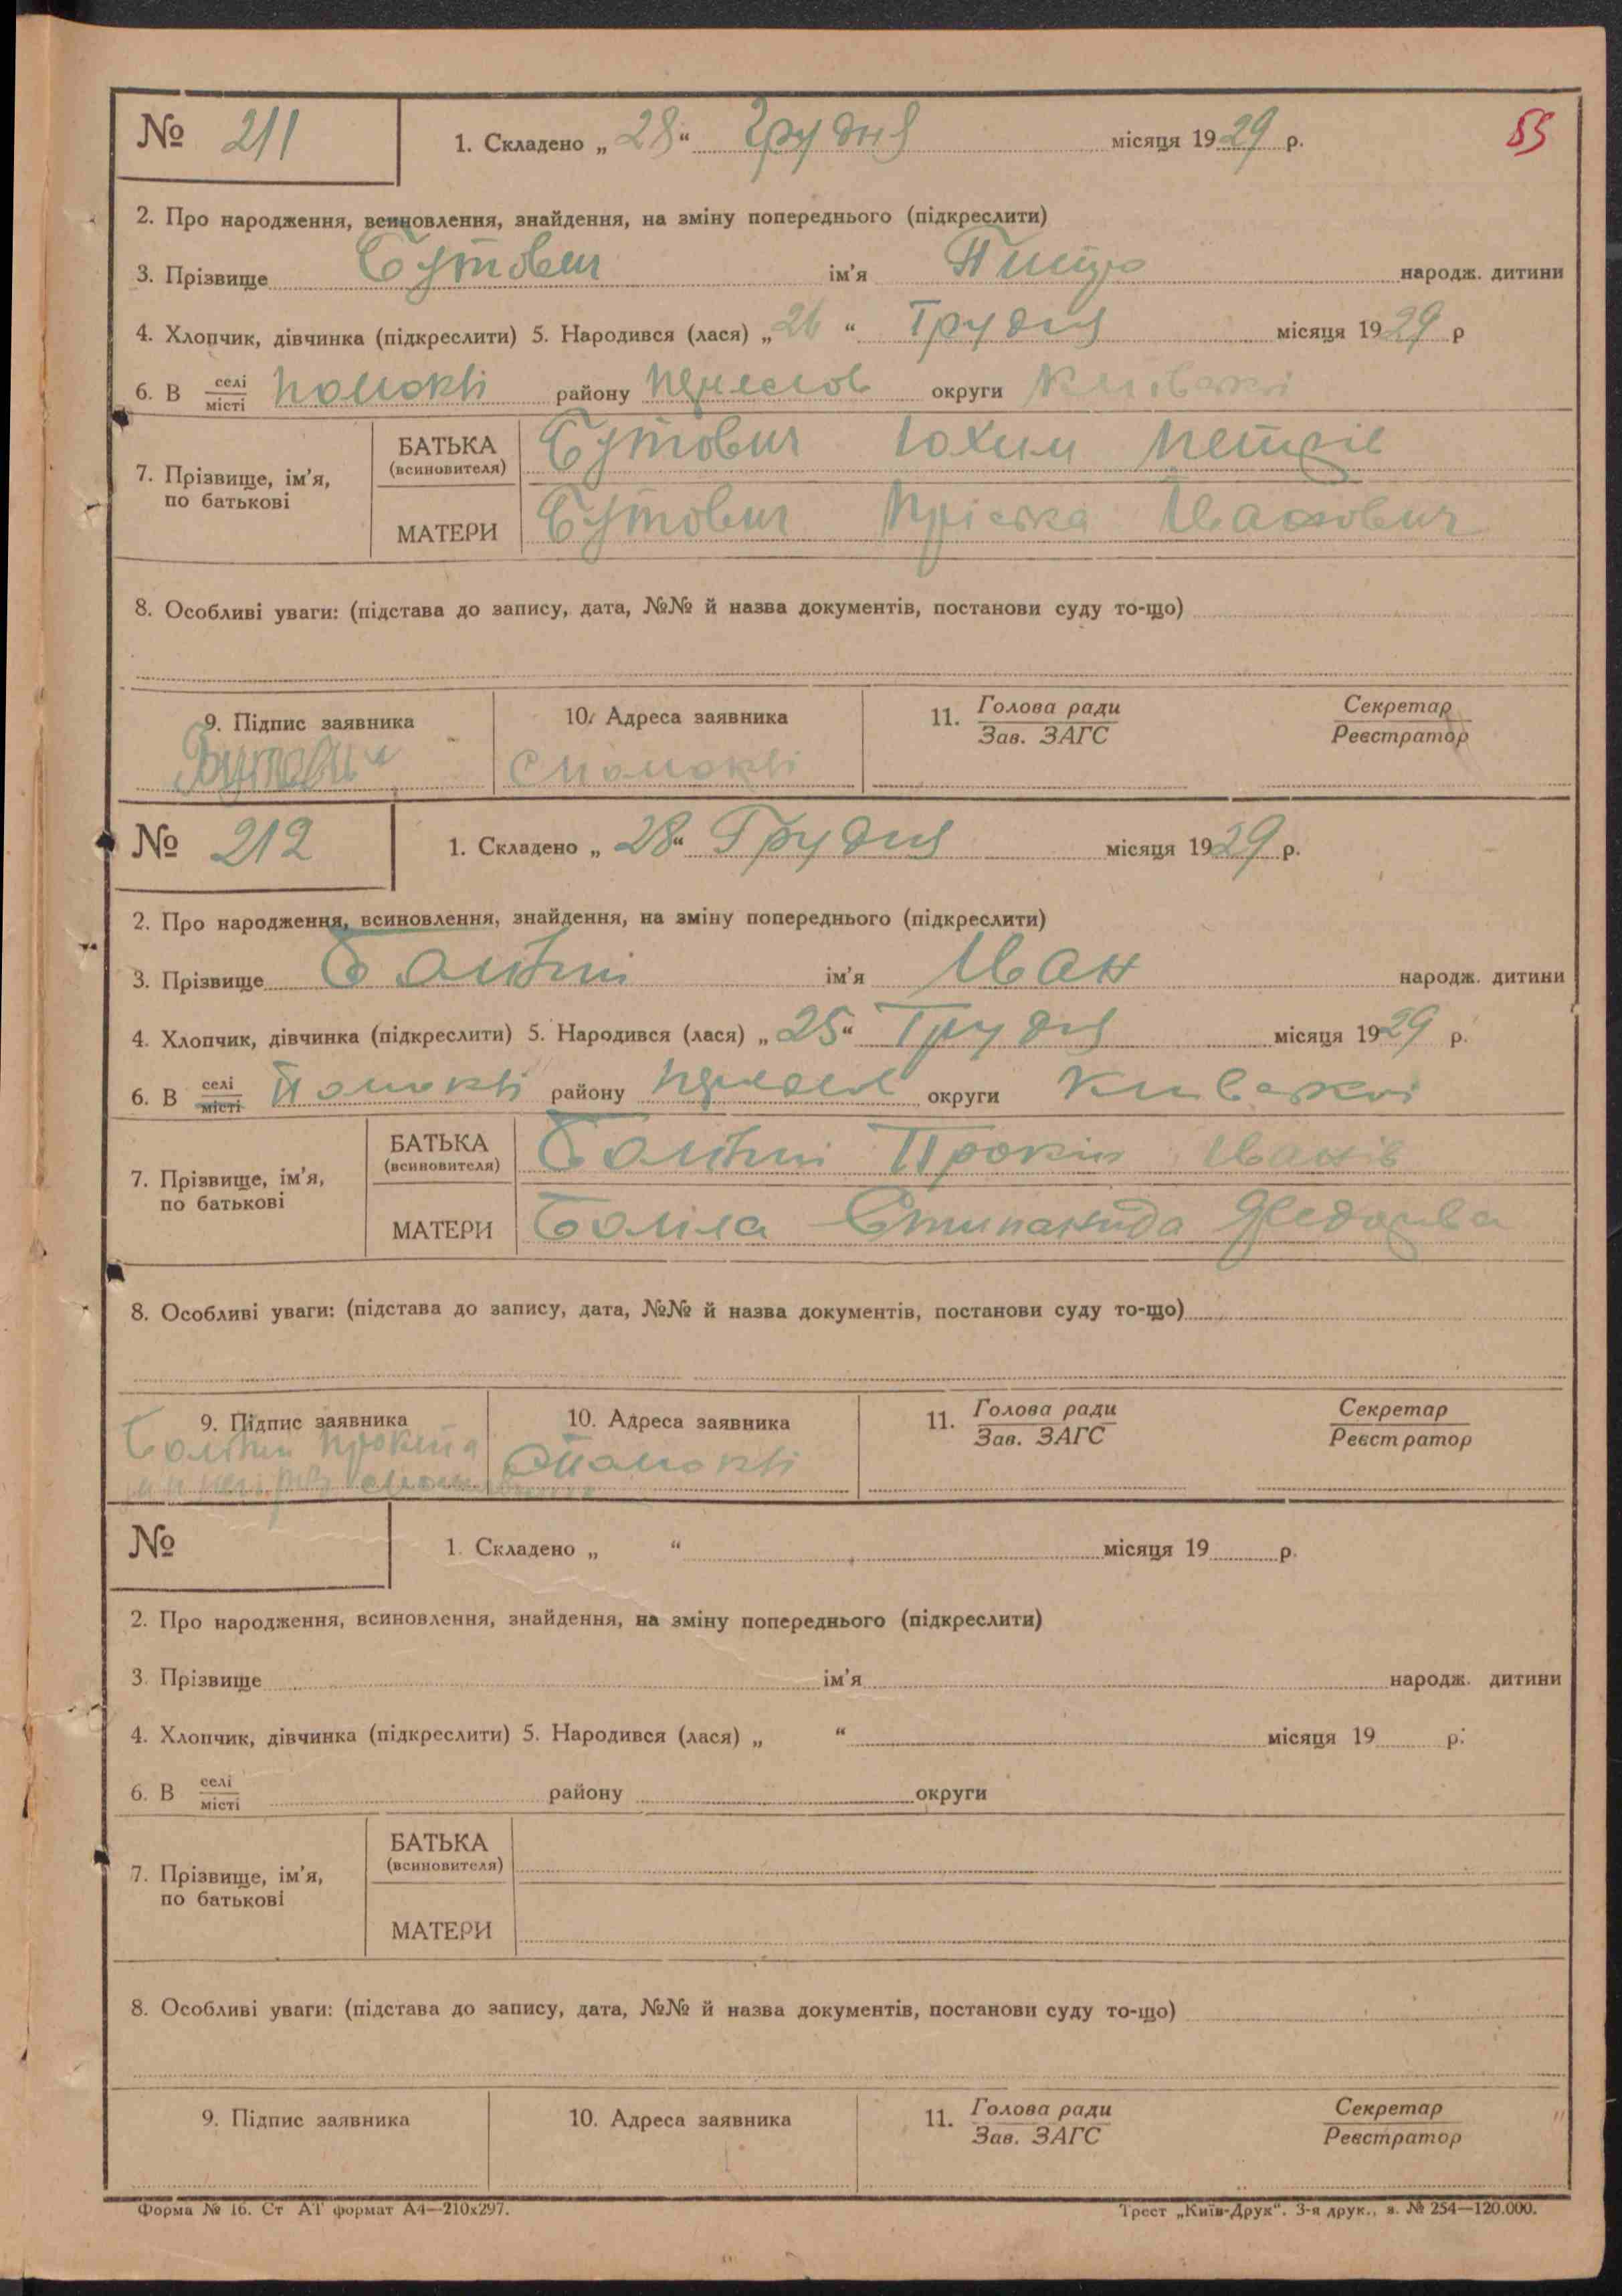 № 211
1. Складено „28“ Грудня місяця 1929 р.
55
2. Про народження, всиновлення, знайдення, на зміну попереднього (підкреслити)
3. Прізвище Бутович ім'я народж. дитини
4. Хлопчик, дівчинка (підкреслити) 5. Народився (лася) „26“ Грудня місяця 1929 р
6. В селі місті Помоклі району округи Київської
7. Прізвище, ім'я, по батькові
БАТЬКА (всиновителя) Бутович Юхим Петрів
МАТЕРИ Бутович Пріська
8. Особливі уваги: (підстава до запису, дата, №№ й назва документів, постанови суду то-що)
9. Підпис заявника
Бутович
10. Адреса заявника
с Помоклі
11. Голова ради
Зав. ЗАГС
Секретар
Реєстратор
№ 212
1. Складено „28“ Грудня місяця 1929 р.
2. Про народження, всиновлення, знайдення, на зміну попереднього (підкреслити)
3. Прізвище ім'я Іван народж. дитини
4. Хлопчик, дівчинка (підкреслити) 5. Народився (лася) „25“ Грудня місяця 1929 р.
6. В селі місті Помоклі району округи Київської
7. Прізвище, ім'я, по батькові
БАТЬКА (всиновителя) Іванів
МАТЕРИ
8. Особливі уваги: (підстава до запису, дата, №№ й назва документів, постанови суду то-що)
9. Підпис заявника
10. Адреса заявника
Помоклі
11. Голова ради
Зав. ЗАГС
Секретар
Реєстратор
№
1. Складено „ “ місяця 19 р.
2. Про народження, всиновлення, знайдення, на зміну попереднього (підкреслити)
3. Прізвище ім'я народж. дитини
4. Хлопчик, дівчинка (підкреслити) 5. Народився (лася) „ “ місяця 19 р.
6. В селі місті району округи
7. Прізвище, ім'я, по батькові
БАТЬКА (всиновителя)
МАТЕРИ
8. Особливі уваги: (підстава до запису, дата, №№ й назва документів, постанови суду то-що)
9. Підпис заявника
10. Адреса заявника
11. Голова ради
Зав. ЗАГС
Секретар
Реєстратор
Форма № 16. Ст АТ формат А4—210x297.
Трест „Київ-Друк“. 3-я друк., з. № 254—120.000.